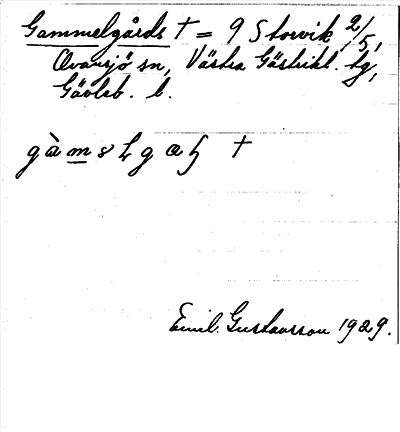 Gammelgårds † = 9 Storvik 2/5,
Ovansjö sn, Västra Gästrikl. tg,
Gävleb. l.
Emil Gustavsson 1929.